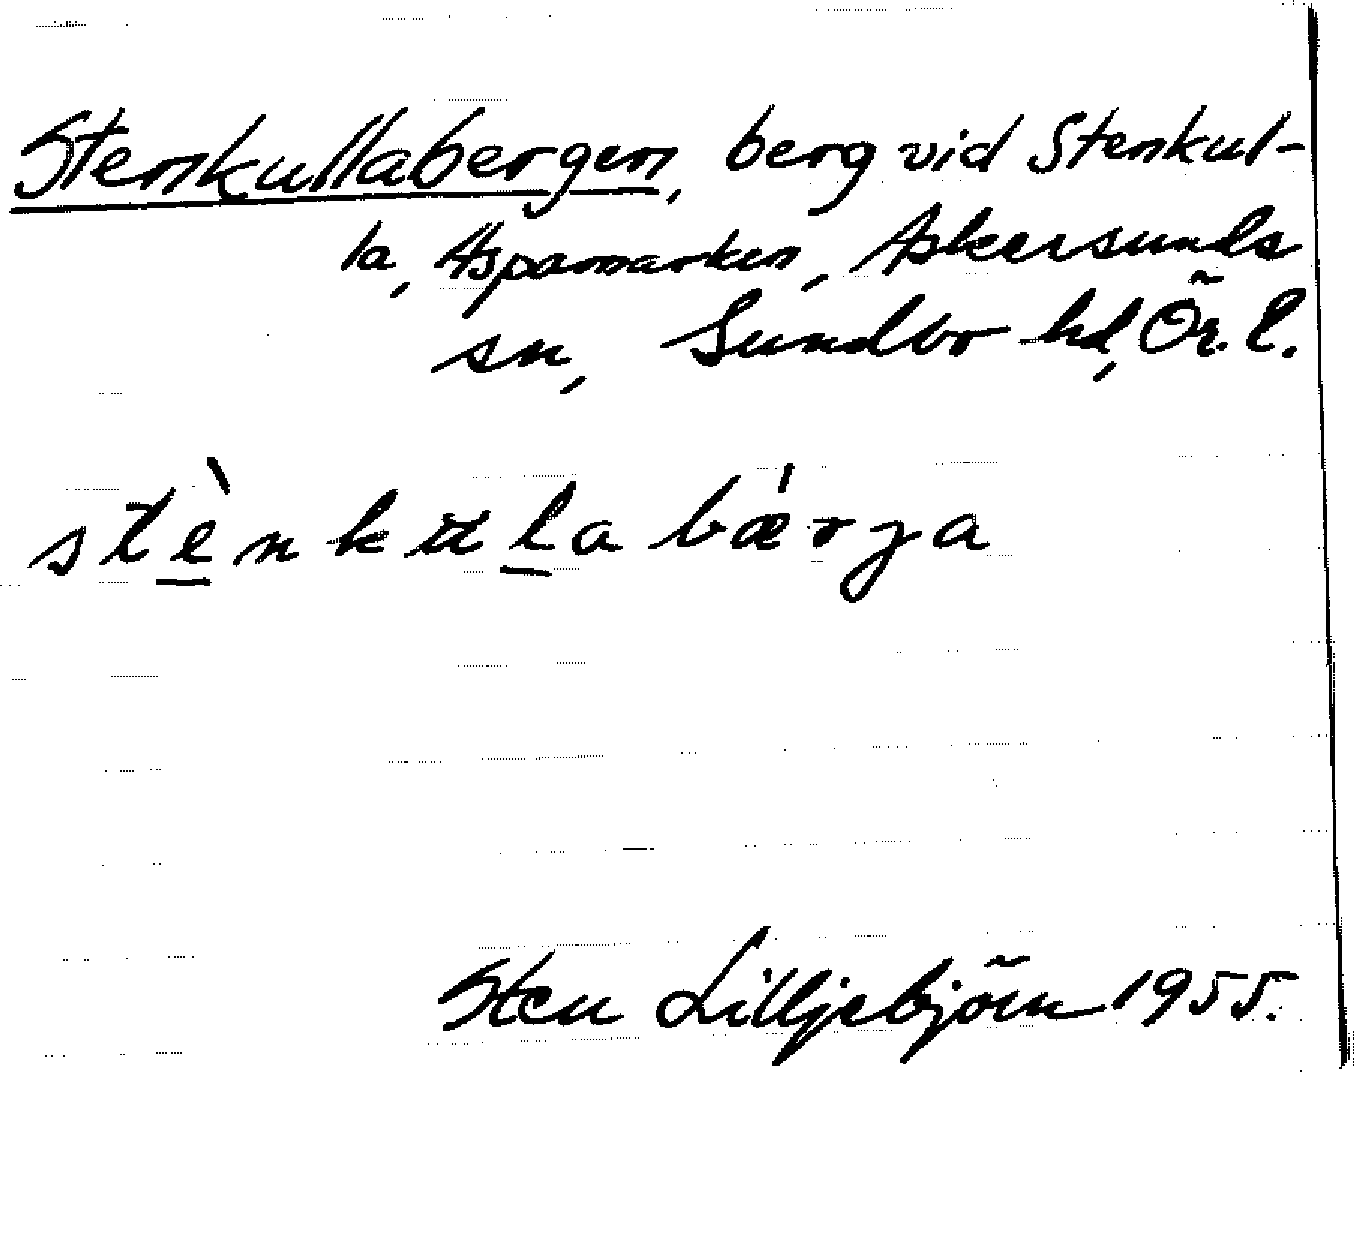 Stenkullabergen, berg vid Stenkul-
la, Aspamarken, Askersunds
sn, Sundbo hd, Ör. l.
stènkulabæ'rja
Sten Lilljebjörn 1955.